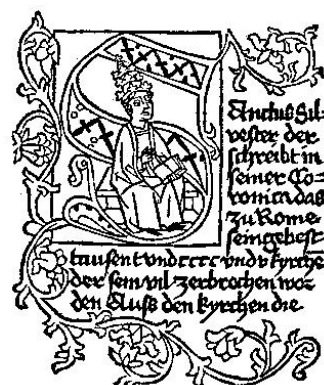 Sanctus Sil=
vester der
schreibt in
seiner Co=
ronica das
zu Rome
sein gebest
tausent vnd cccc vnd v kyrche
der sein vil zerbrochen wor
den Auß den kyrchen die